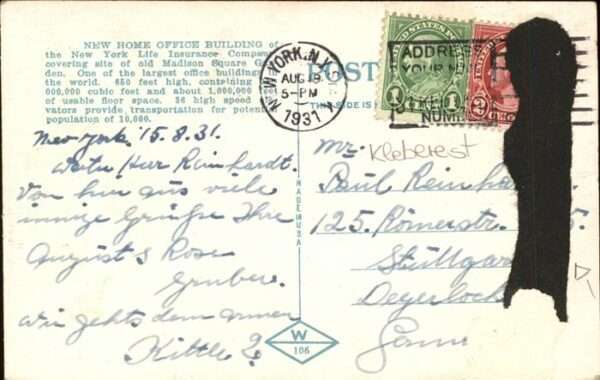 NEW HOME OFFICE BUILDING of
the New York Life Insurance Company
covering site of old Madison Square Gar-
den. One of the largest office buildings
the world. 650 feet high, containing
000,000 cubic feet and about 1,000,000
of usable floor space. 36 high speed
vators provide transportation for poten
population of 10,000.
NEW YORK, N.Y.
AUG 19
5-PM
1931
POST
THIS SIDE IS
ADDRESS
YOUR
NUM
1
1
2
MADE IN U.S.A.
W
106
New York, 15.8.31.
Herr Reinhardt.
Von hier aus viele
innige Grüße Ihre
August & Rosa
Gruber.
Wie gehts dem armen
Kittle?
Mr.
Kleberest
Paul Reinhar
125. Römerstr.
Stuttgar
Degerloch
Germ